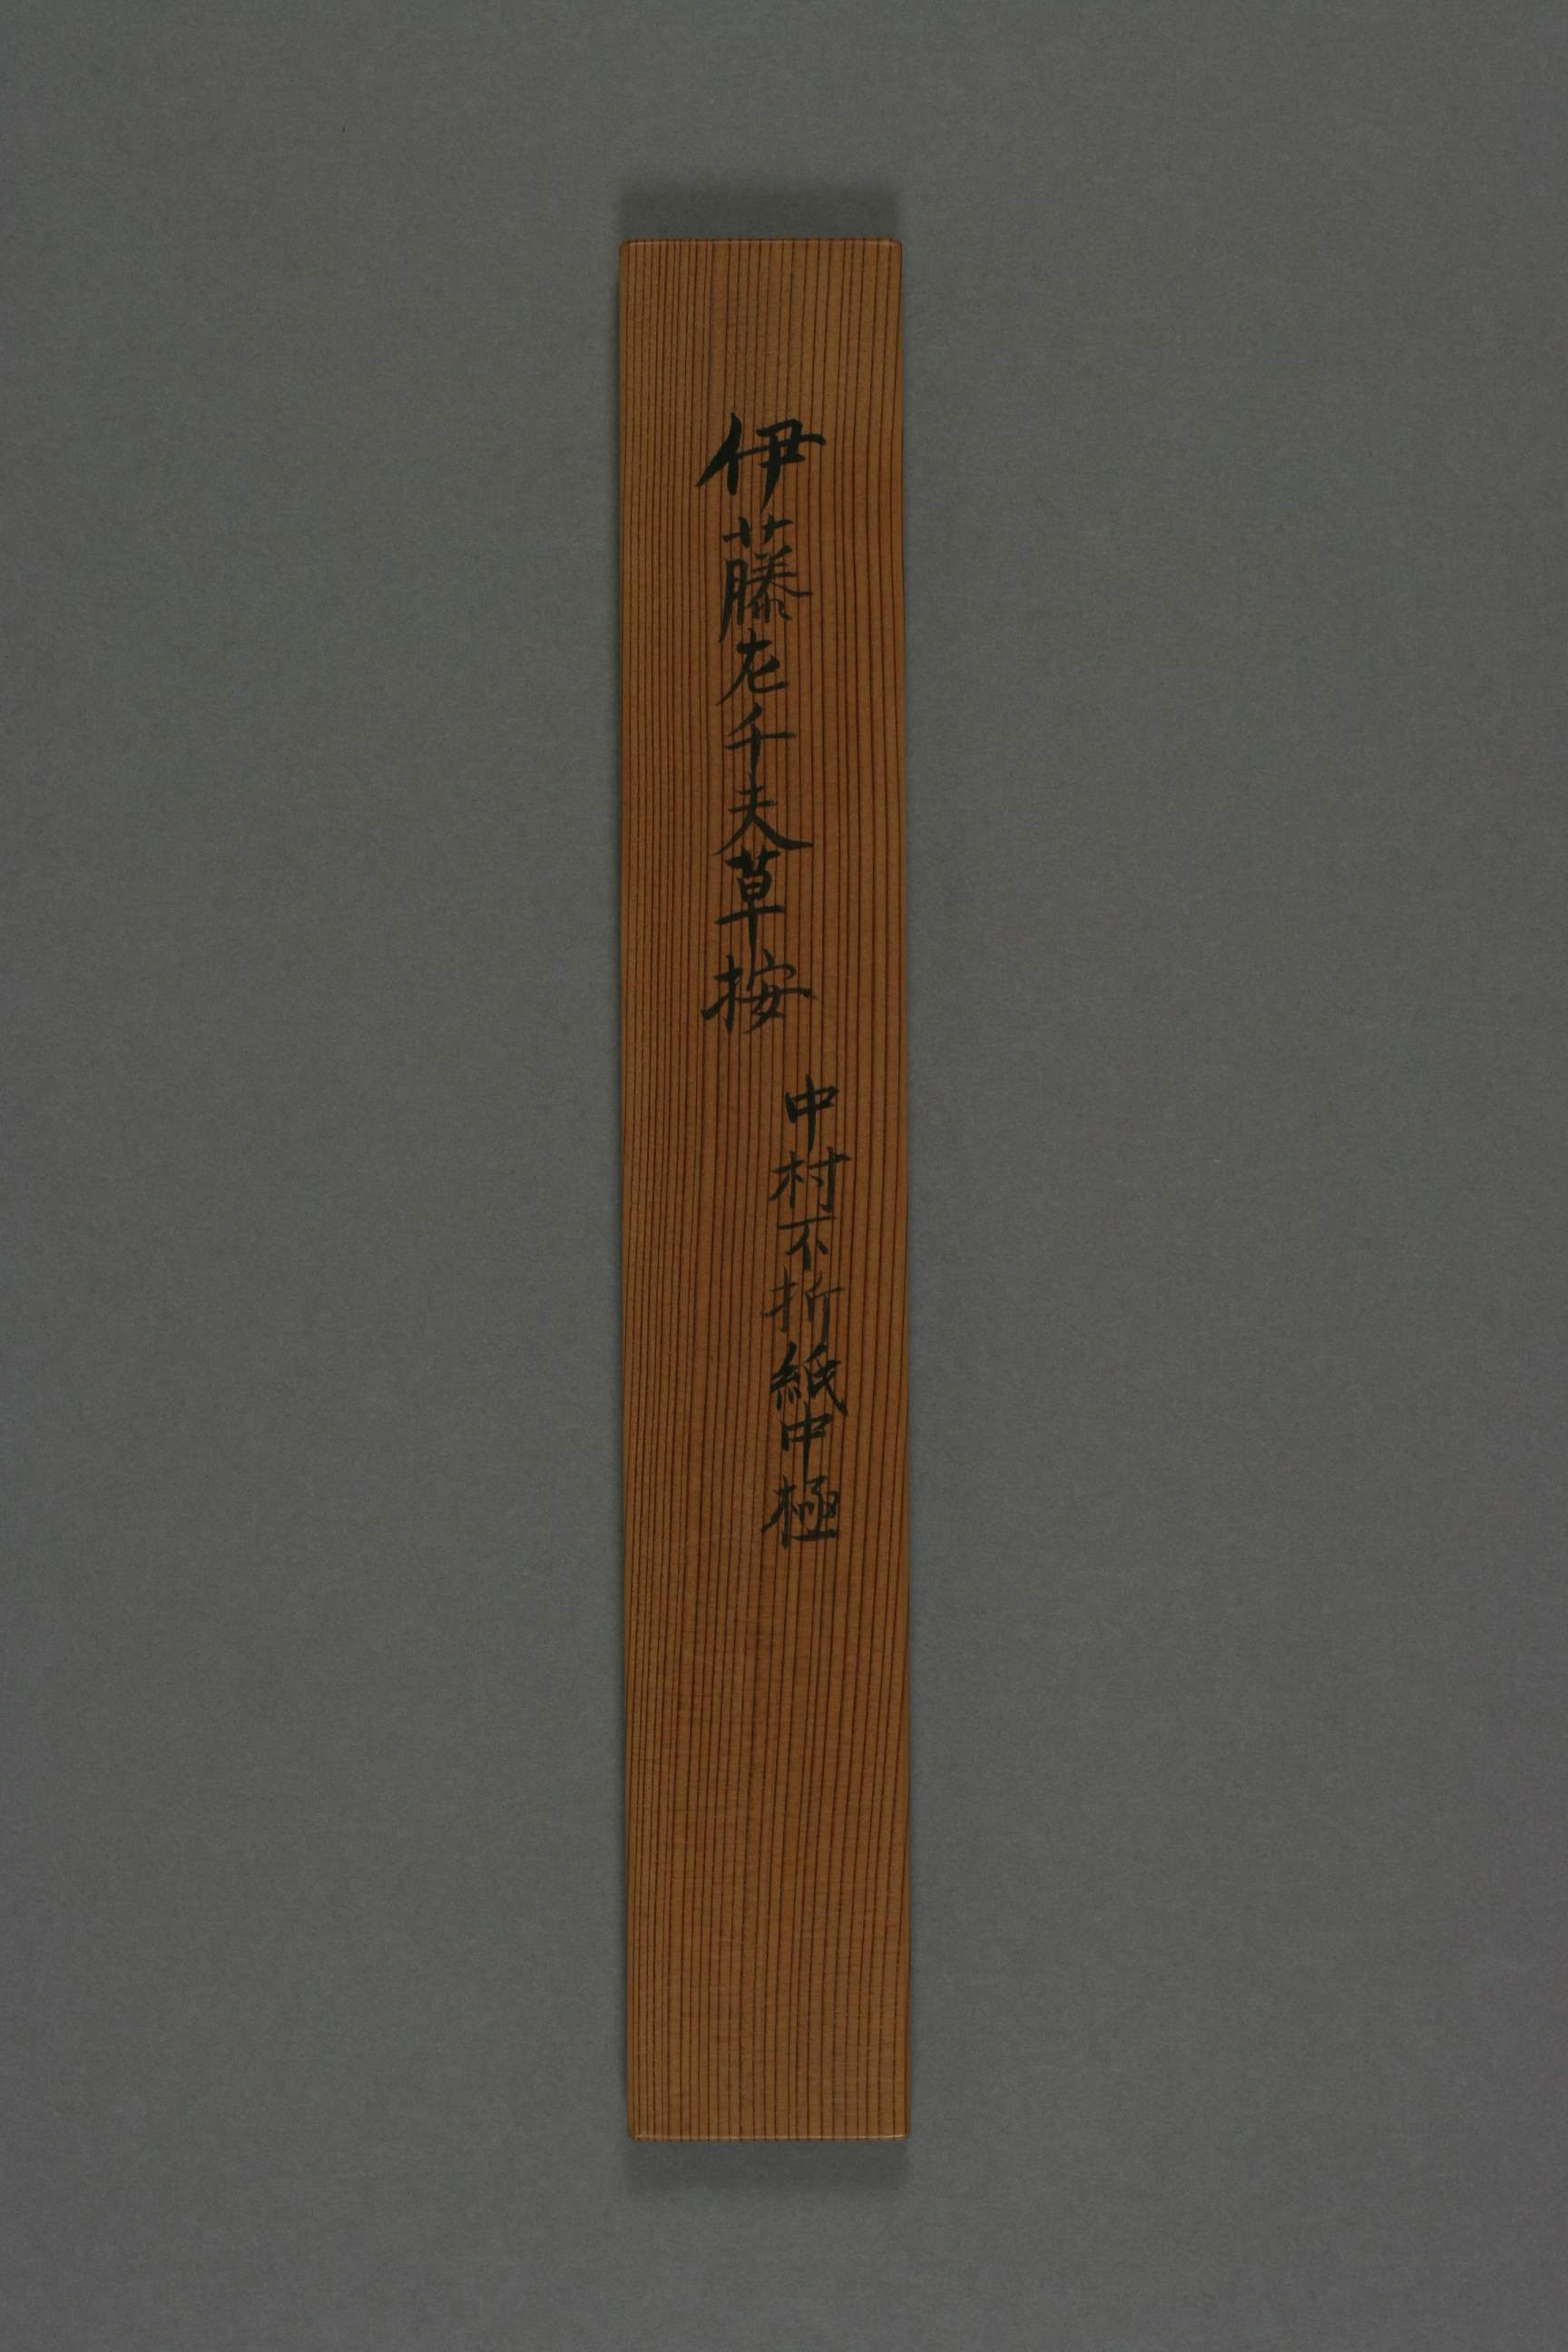 伊藤左千夫草按
中村不折紙中極